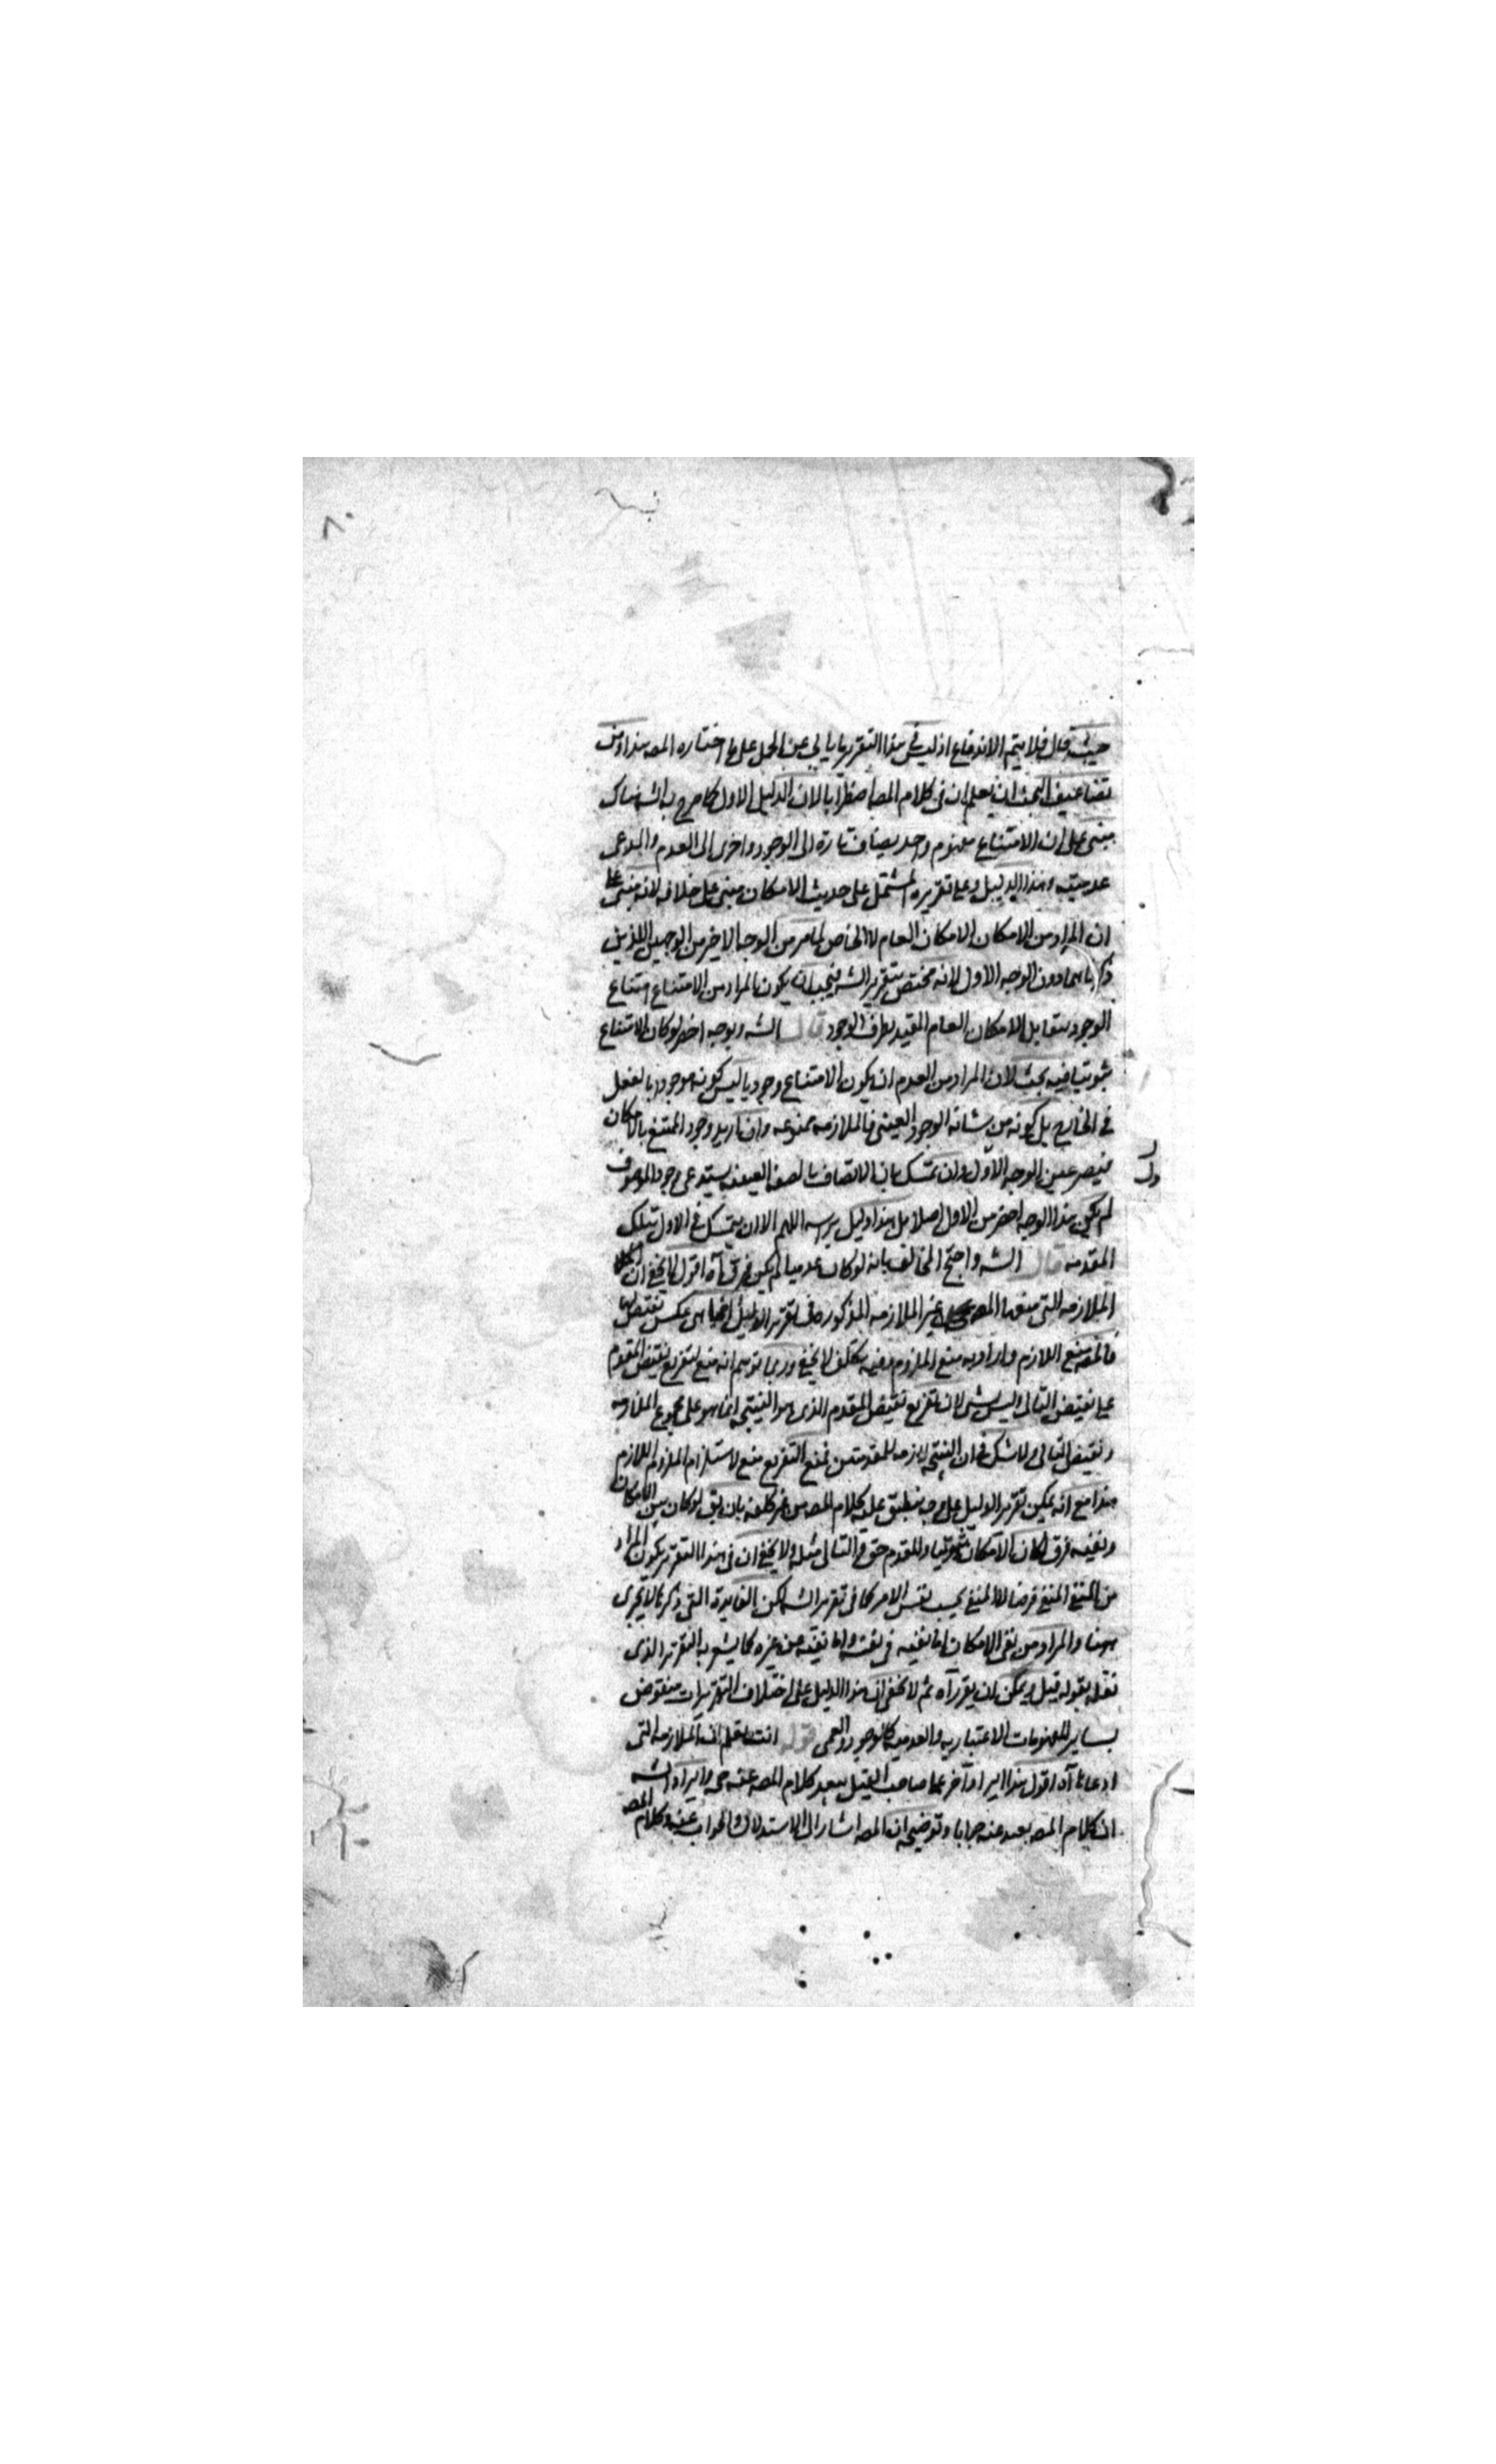 ٨٠
حيث قال فلا يتم الاندفاع اذ ليس في هذا التقرير ما يابى عن الحمل على ما اختاره المصه هذا ومن
تضاعيف البحث ان يعلم ان في كلام المصه اضطرابا لان الدليل الاول كما صرح به الشه هناك
مبنى على ان الامتناع مفهوم واحد يضاف تارة الى الوجود واخرى الى العدم والمدعى
عدميته وهذا الدليل وعلى تقريره المشتمل على حديث الامكان مبنى على خلافه لانه مبنى على
ان المراد من الامكان الامكان العام لا الخاص لما مر من الوجه الاخير من الوجهين اللذين
ذكرناهما دون الوجه الاول لانه مختص بتقرير الشه فيجب ان يكون المراد من الامتناع امتناع
الوجود ليقابل الامكان العام المقيد بطرف الوجود قال الشه وبوجه اخصر لو كان الامتناع
ثبوتيا فيه بحث لان المراد من العدم ان يكون الامتناع وجوديا ليس كونه موجودا بالفعل
في الخارج بل كونه من شانه الوجود العينى فالملازمه ممنوعه وان اريد وجود الممتنع بالامكان
فيصر عين الوجه الاول وان تمسك بان الاتصاف بالصفه العينيه يستدعى وجود الموصوف
لم يكن هذا الوجه اخصر من الاول اصلا بل هذا دليل براسه اللهم الا ان يتمسك في الاول بتلك
المقدمه قال الشه واحتج المخالف بانه لو كان عدميا لم يكن فرق آه اقول لا يخفى ان
الملازمه التى منعها المصه غير الملازمه المذكوره في تقرير الدليل انما هى عكس نقيضها
فالمصه منع اللازم واراد به منع الملزوم وفيه تكلف لا يخفى وربما توهم انه منع لتفريع نقيض المقدم
على نقيض التالى وليس بشى لان تفريع نقيض المقدم الذى هو النتيجه انما هو على مجموع الملازمه
ونقيض التالى ولا شك في ان النتيجه لازمه للمقدمتين فمنع التفريع منع لاستلزام الملزوم اللازم
هذا مع انه يمكن تقرير الدليل على وجه ينطبق عليه كلام المصه من غير كلفه بان يق لو كان بين الامكان
ونفيه فرق لكان الامكان ثبوتيا والمقدم حق فالتالى مثله ولا يخفى ان في هذا التقرير يكون المراد
من المنفى المنفى فرضا لا المنفى بحسب نفس الامر كما في تقرير الشه لكن الفايدة التى ذكرها لا تجرى
ههنا والمراد من نفى الامكان اما نفيه في نفسه واما نفيه عن غيره كما يشعر به التقرير الذى
نقله بقوله قيل ويمكن ان يقرر آه ثم لا يخفى ان هذا الدليل على اختلاف التقريرات منقوض
بساير المفهومات الاعتباريه والعدميه كالوجود والعمى قوله انت تعلم ان الملازمه التى
ادعاها آه اقول هذا ايراد آخر على صاحب القيل ببعد كلام المصه عنه وايراد الشه
ان كلام المصه بعيد عنه جوابا وتوضيحه ان المصه اشار الى الاستدلال والجواب عنه وكلام المصه